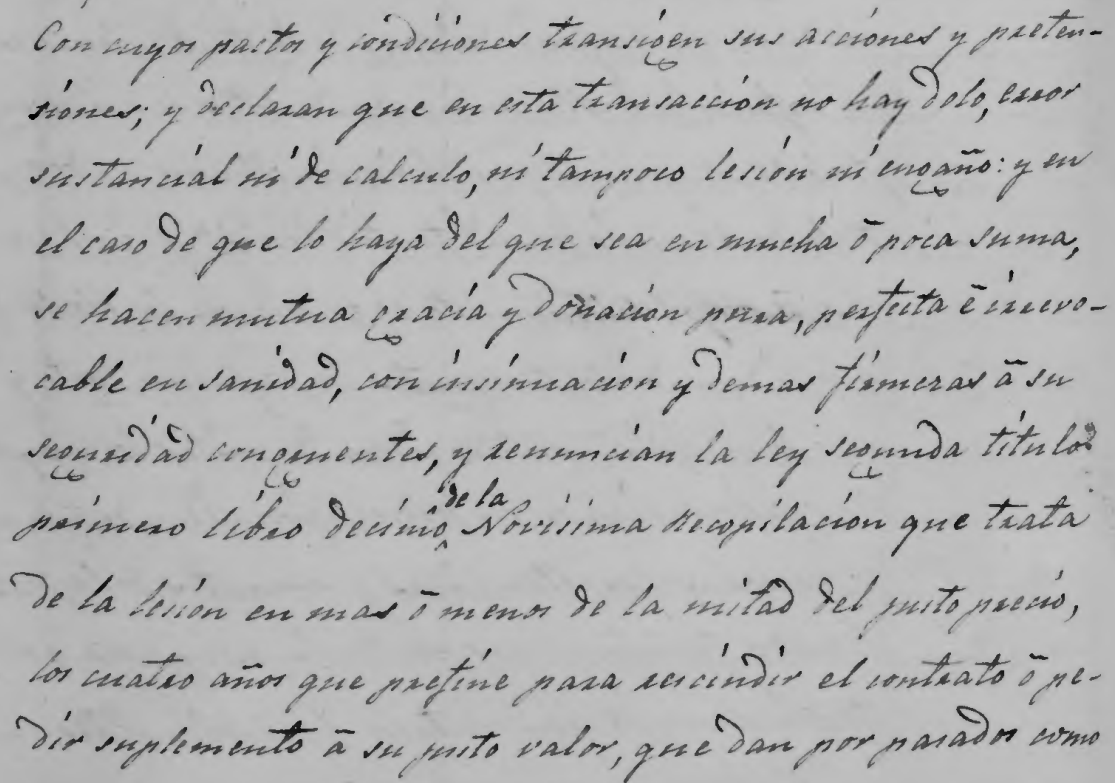 Con cuyos pactos y condiciones transigen sus acciones y preten-
siones; y declaran que en esta transaccion no hay dolo, error
sustancial ni de calculo, ni tampoco lesion ni engaño: y en
el caso de que lo haya del que sea en mucha ō poca suma,
se hacen mutua gracia y donacion pura, perfecta ē irrevo-
cable en sanidad, con insinuacion y demas firmezas ā su
seguridad congruentes, y renuncian la ley segunda titulo
primero libro decimo de la Novisima Recopilacion que trata
de la lesion en mas ō menos de la mitad del justo precio,
los cuatro años que prefine para rescindir el contrato ō pe-
dir suplemento ā su justo valor, que dan por pasados como